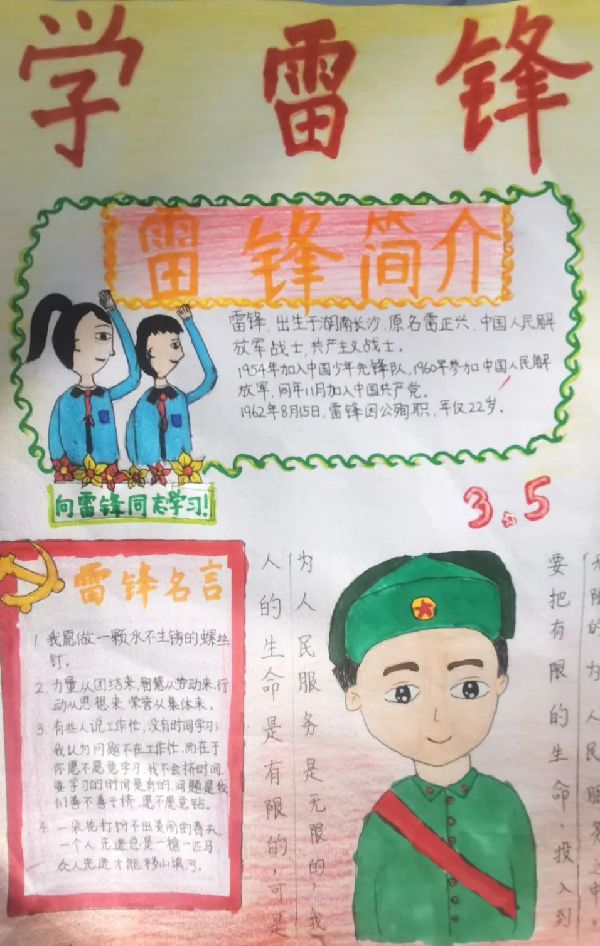 学雷锋
雷锋简介
雷锋，出生于湖南长沙，原名雷正兴，中国人民解
放军战士，共产主义战士。
1954年加入中国少年先锋队，1960年参加中国人民解
放军，同年11月加入中国共产党。
1962年8月15日，雷锋因公殉职，年仅22岁。
向雷锋同志学习！
3.5
雷锋名言
1. 我愿做一颗永不生锈的螺丝
钉。
2. 力量从团结来，智慧从劳动来，行
动从思想来，荣誉从集体来。
3. 有些人说工作忙，没有时间学习，
我认为问题不在工作忙，而在于
你愿不愿意学习，我不会挤时间，
要学习的时间是有的，问题是我
们善不善于挤，愿不愿意钻。
4. 一朵花打扮不出美丽的春天，
一个人先进总是
众人先进才能移山填河。
人的生命是有限的，可是
为人民服务是无限的，我
要把有限的生命，投入到
无限的为人民服务之中。